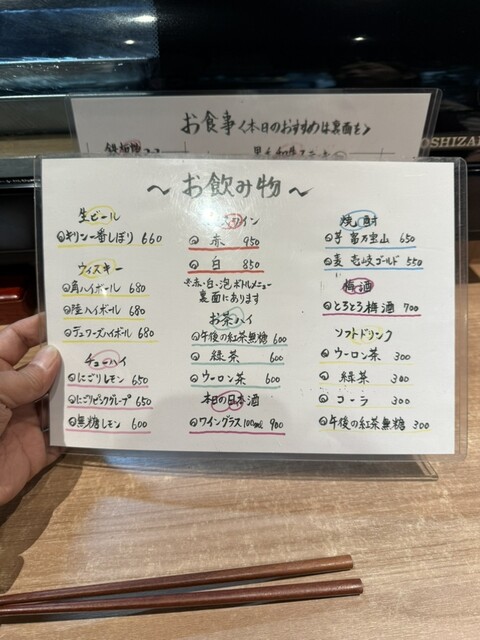 お食事〈本日のおすすめは裏面を〉
OSHIZA
〜お飲み物〜
生ビール
キリン一番しぼり 660
ウィスキー
角ハイボール 680
陸ハイボール 680
デュワーズハイボール 680
チューハイ
にごりレモン 650
にごりピンクグレープ 650
無糖レモン 600
ワイン
赤 950
白 850
※赤・白・泡ボトルメニュー
裏面にあります
お茶ハイ
午後の紅茶無糖 600
緑茶 600
ウーロン茶 600
本日の日本酒
ワイングラス100ml 900
焼酎
芋 富乃宝山 650
麦 壱岐ゴールド 550
梅酒
とろとろ梅酒 700
ソフトドリンク
ウーロン茶 300
緑茶 300
コーラ 300
午後の紅茶無糖 300